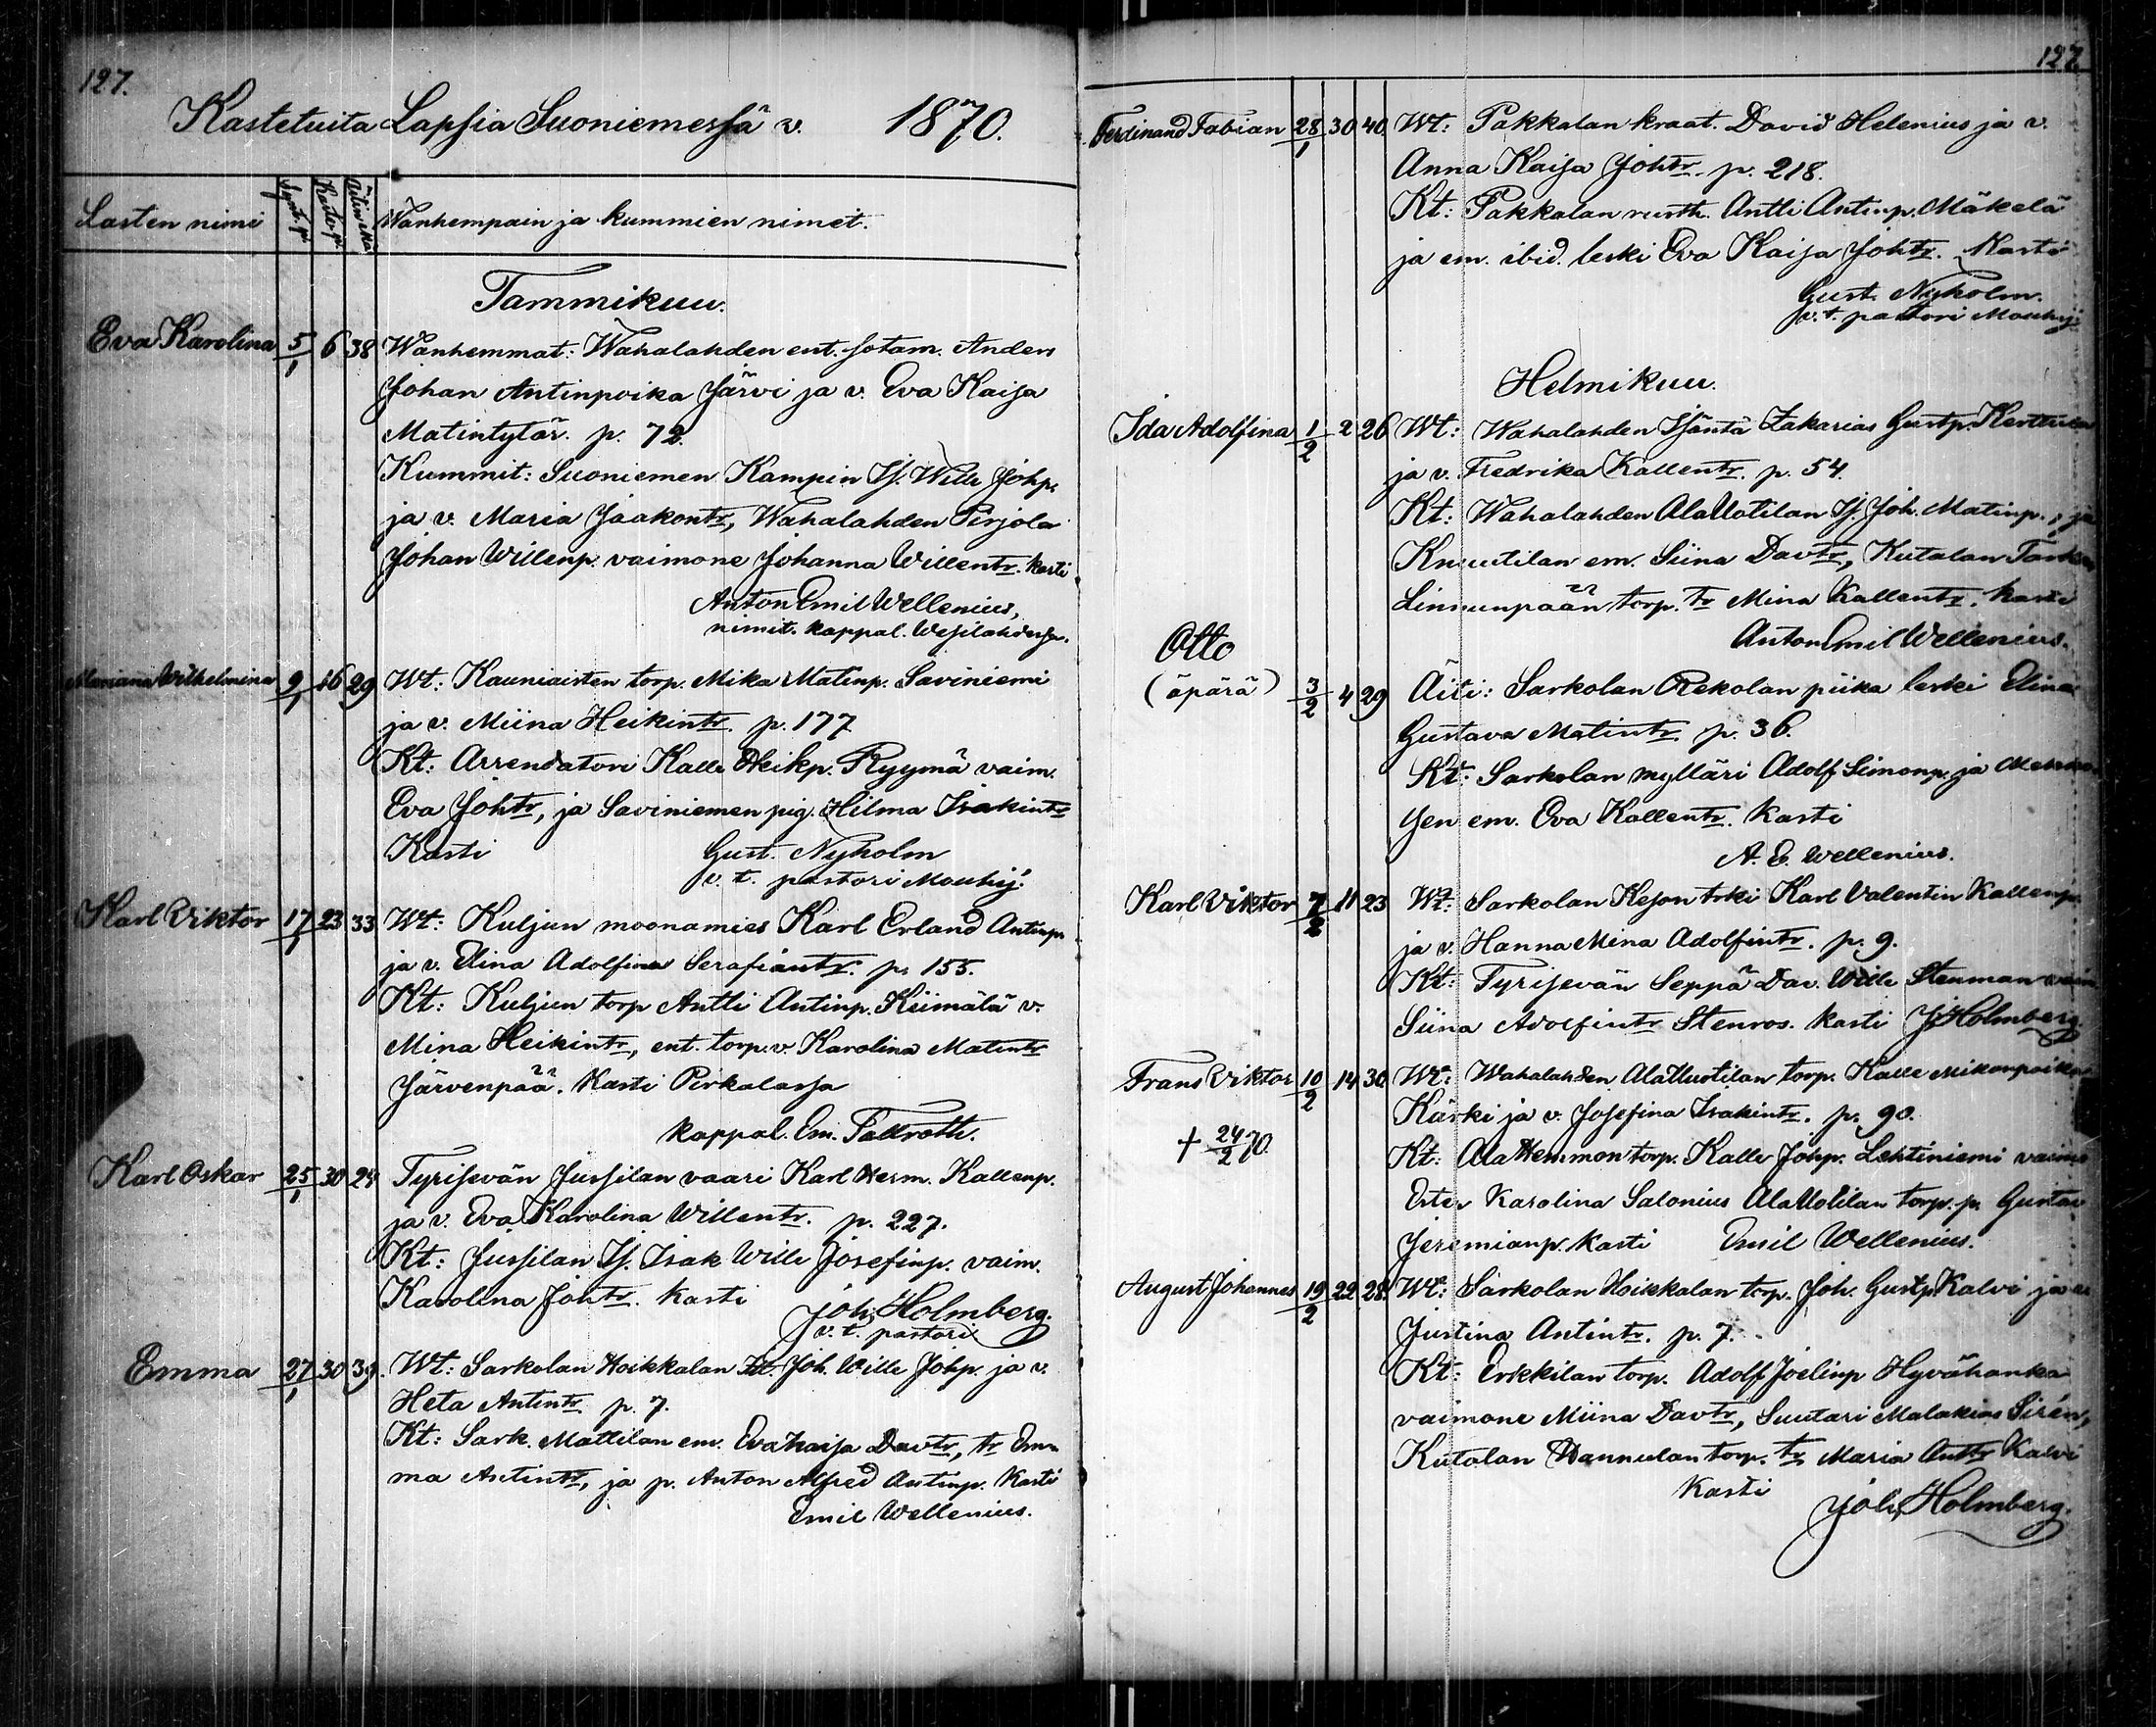 127.
Kastetuita Lapsia Suoniemessä v. 1870.
Lasten nimi Synt. p. Kaste p. Äitin ikä Wanhempain ja kummien nimet.
Tammikuu.
Eva Karolina 5/1 6 38 Wanhemmat: Wahalahden ent. sotam. Anders
Johan Antinpoika Järvi ja v. Eva Kaisa
Matintytär. p. 72.
Kummit: Suoniemen Kampin Is. Wille Johp.
ja v. Maria Jaakontr, Wahalahden Pirjola
Johan Willenp. vaimone Johanna Willentr. kasti
Anton Emil Wellenius,
nimit. kappal. Wesilahdessa.
Mariana Wilhelmina 9/1 16 29 Wt: Kauniaisten torp. Mika Matinp. Saviniemi
ja v. Miina Heikintr. p. 177
Kt: Arrendatori Kalle Heikp. Ryymä vaim.
Eva Johtr, ja Saviniemen pig. Hilma Isakintr
Kasti Gust. Nyholm
v. t. pastori Mouhij.
Karl Viktor 17/1 23 33 Wt: Kuljun moonamies Karl Erland Antinp.
ja v. Elina Adolfina Serafiantr. p. 155.
Kt: Kuljun torp Antti Antinp. Kiimälä v.
Mina Heikintr, ent. torp. v. Karolina Matintr
Järvenpää. Kasti Pirkalassa
kappal. Em. Tallroth.
Karl Oskar 25/1 30 24 Tyrisevän Jussilan vaari Karl Herm. Kallenp.
ja v. Eva Karolina Willentr. p. 227.
Kt: Jussilan Is. Isak Wille Josefinp. vaim.
Karolina Johtr. kasti Joh. Holmberg.
v. t. pastori
Emma 27/1 30 39. Wt: Sarkolan Hoikkalan Joh. Wille Johp. ja v.
Heta Antintr. p. 7.
Kt: Sark. Mattilan em. Eva Kaisa Davtr, tr Em-
ma Antintr, ja p. Anton Alfred Antinp. Kasti
Emil Wellenius.
127
Ferdinand Fabian 28/1 30 40 Wt: Pakkalan kraat. David Helenius ja v.
Anna Kaisa Johtr. p. 218.
Kt: Pakkalan rusth. Antti Antinp. Mäkelä
ja em. ibid. leski Eva Kaisa Johtr. Kasti
Gust. Nyholm.
v. t. pastori Mouhij.
Helmikuu.
Ida Adolfina 1/2 2 26 Wt: Wahalahden Isäntä Zakarias Gustp. Kerttula
ja v. Fredrika Kallentr. p. 54.
Kt: Wahalahden AlaUotilan Is. Joh. Matinp., ja
Knuutilan em. Siina Davtr, Kutalan
Linnunpään torp. tr Mina Kallentr. kasti
Anton Emil Wellenius.
Otto
(äpärä) 3/2 4 29 Äiti: Sarkolan Rekolan piika leski Elina
Gustava Matintr. p. 36.
Kt: Sarkolan mylläri Adolf Simonp. ja
em. Eva Kallentr. Kasti
A. E. Wellenius.
Karl Viktor 7/2 11 23 Wt: Sarkolan Keson trki Karl Valentin Kallenp.
ja v. Hanna Mina Adolfintr. p. 9.
Kt: Tyrisevän Seppä Dav. Wille Stenman vaim.
Siina Adolfintr Stenros. kasti J. Holmberg.
Frans Viktor 10/2 14 30 Wt: Wahalahden AlaUuotilan torp. Kalle Mikonpoika
Kärki ja v. Josefina Isakintr. p. 90.
† 24/2 70. Kt: AlaHemmon torp. Kalle Johp. Lehtiniemi vaim.
Ester Karolina Salonius AlaUotilan torp. p. Gustav
Jeremianp. kasti Emil Wellenius.
August Johannes 19/2 22 28. Wt: Sarkolan Hoikkalan torp. Joh. Gustp. Kalvi ja v.
Justina Antintr. p. 7.
Kt: Erkkilan torp. Adolf Joelinp Hyvähanka
vaimone Miina Davtr, Suutari Malakias Sirén,
Kutalan Hannulan torp. tr. Maria Anttr Kalvi
Kasti Joh. Holmberg.